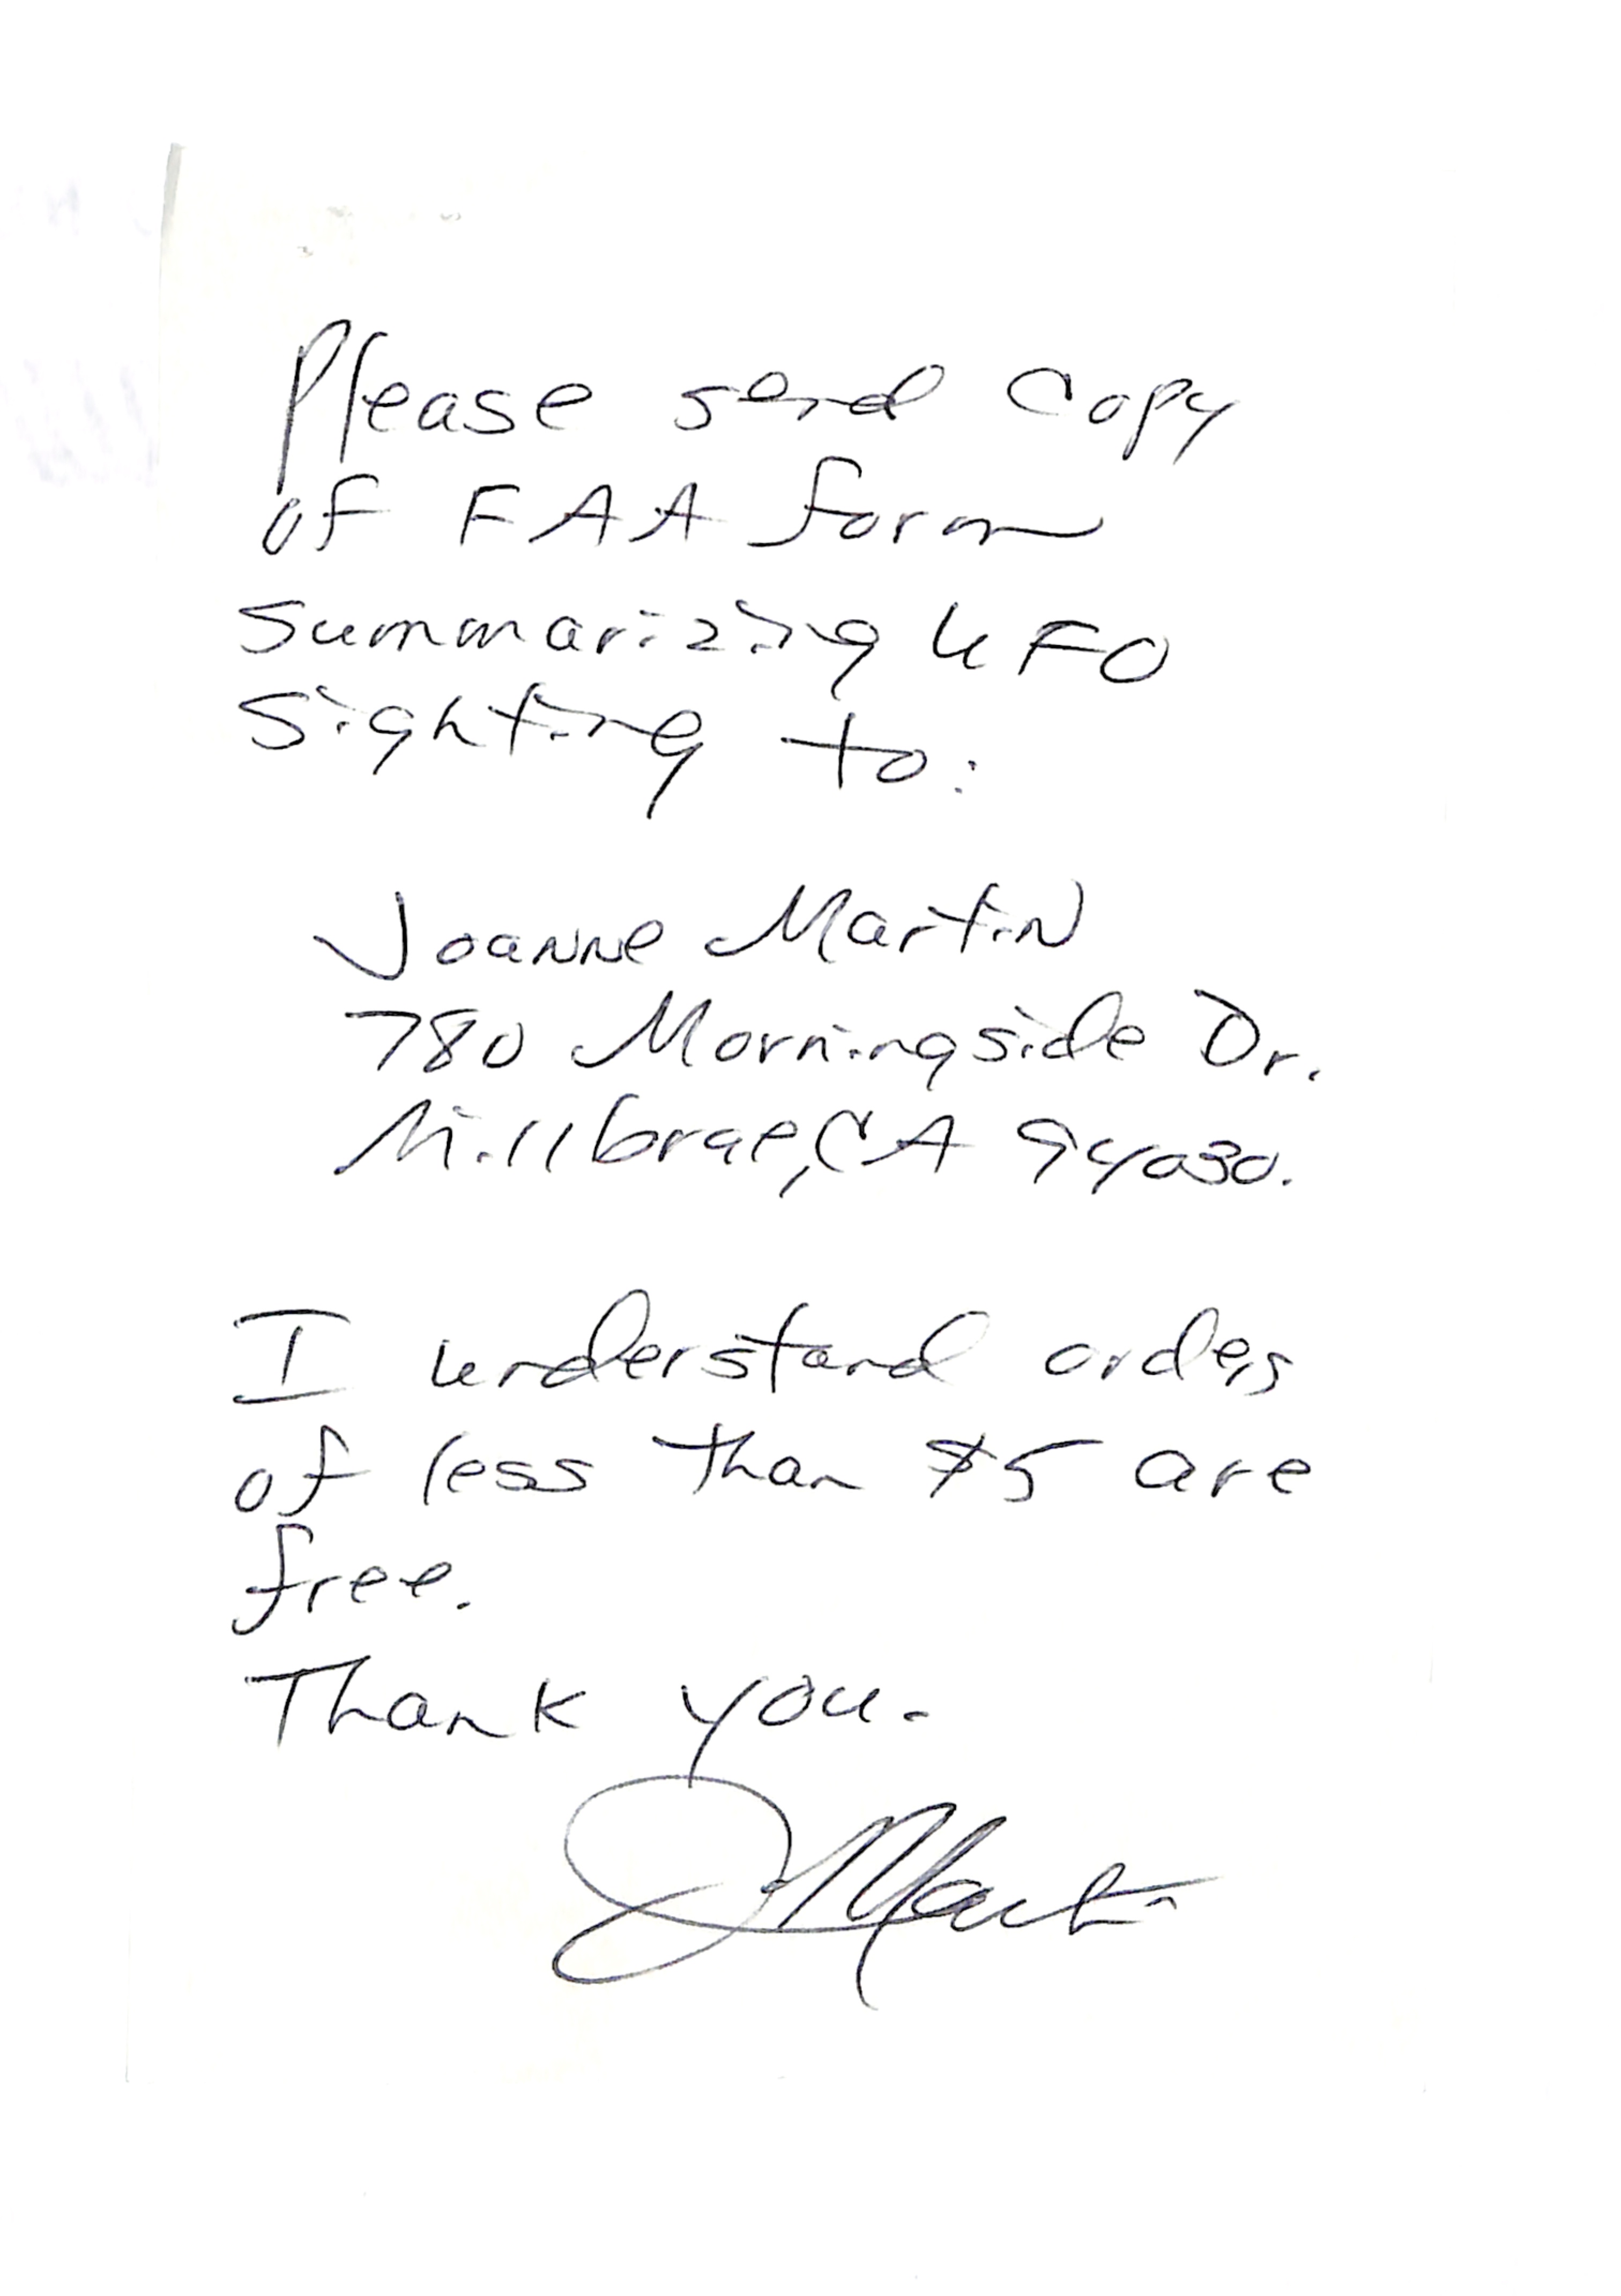 Please send copy
of FAA form
summarizing UFO
sighting to:
Joanne Martin
780 Morningside Dr.
Millbrae, CA 94030.
I understand orders
of less than $5 are
free.
Thank you.
J Martin